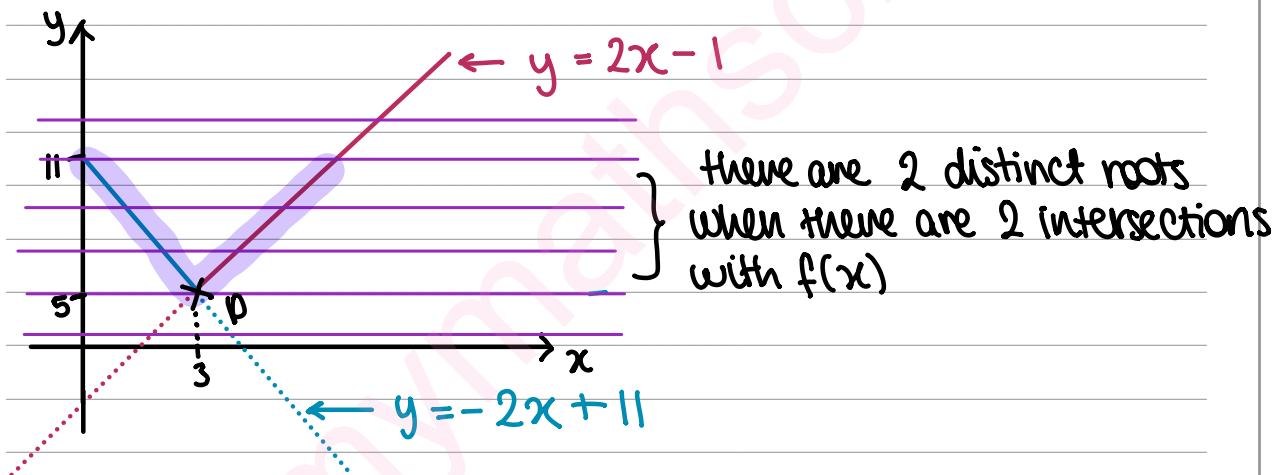 y
y = 2x - 1
11
there are 2 distinct roots
when there are 2 intersections
with f(x)
5
P
x
3
y = -2x + 11
mymathsc